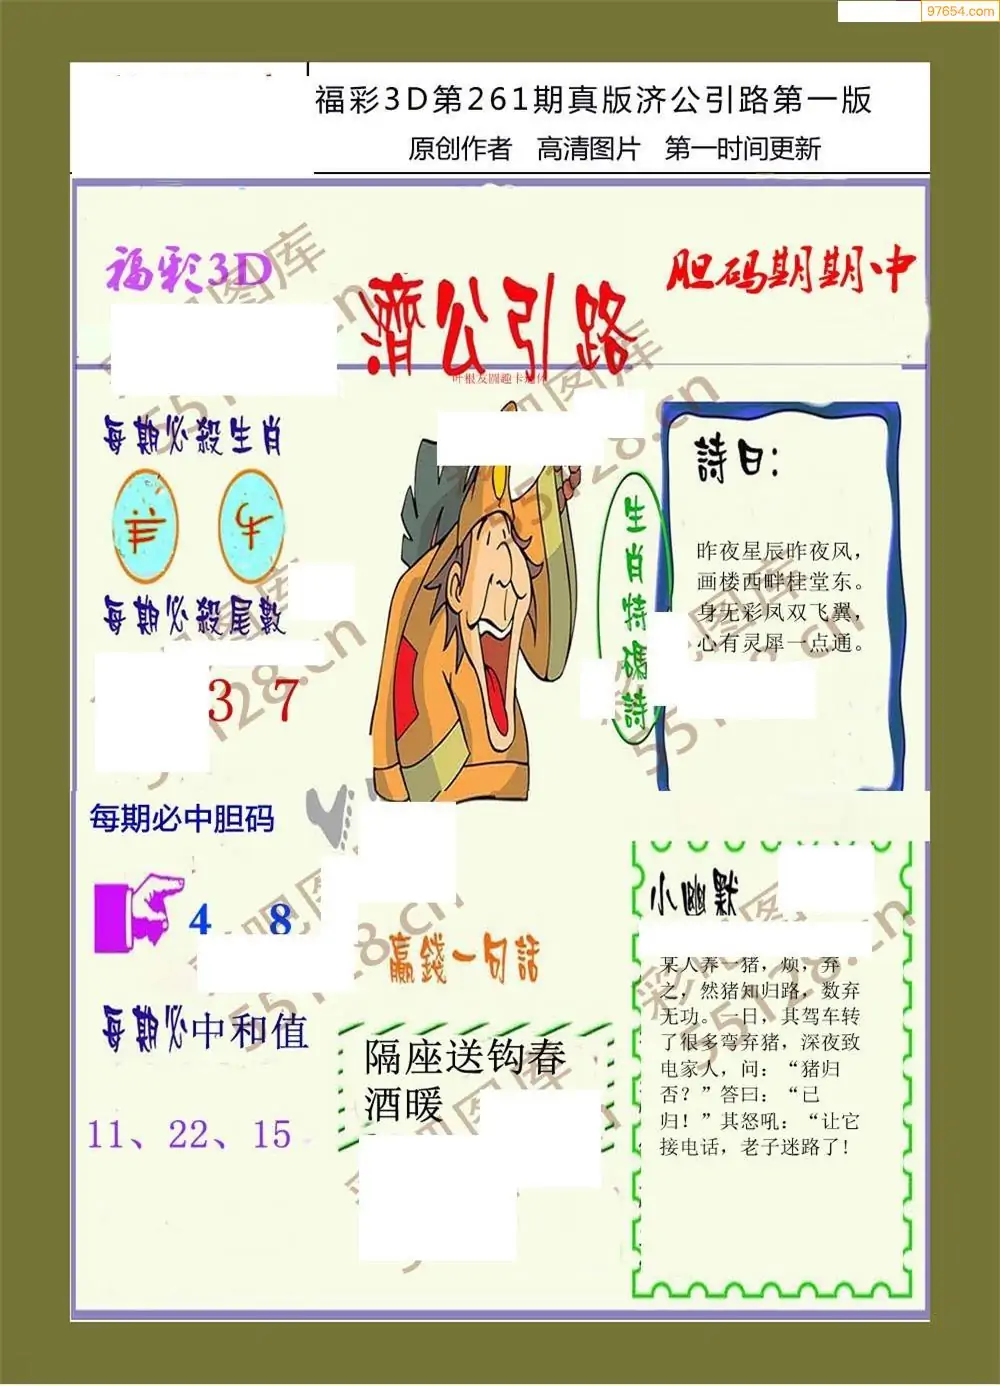 97654.com
福彩3D第261期真版济公引路第一版
原创作者 高清图片 第一时间更新
福彩3D
濟公引路
胆码期期中
叶根友圆趣卡通体
每期必殺生肖
羊 牛
每期必殺尾數
3 7
生肖特碼詩
詩曰：
昨夜星辰昨夜风，
画楼西畔桂堂东。
身无彩凤双飞翼，
心有灵犀一点通。
每期必中胆码
4 8
每期必中和值
11、22、15
贏錢一句話
隔座送钩春
酒暖
小幽默
某人养一猪，烦，弃
之，然猪知归路，数弃
无功。一日，其驾车转
了很多弯弃猪，深夜致
电家人，问：“猪归
否？”答曰：“已
归！”其怒吼：“让它
接电话，老子迷路了!
彩吧图库
55128.cn